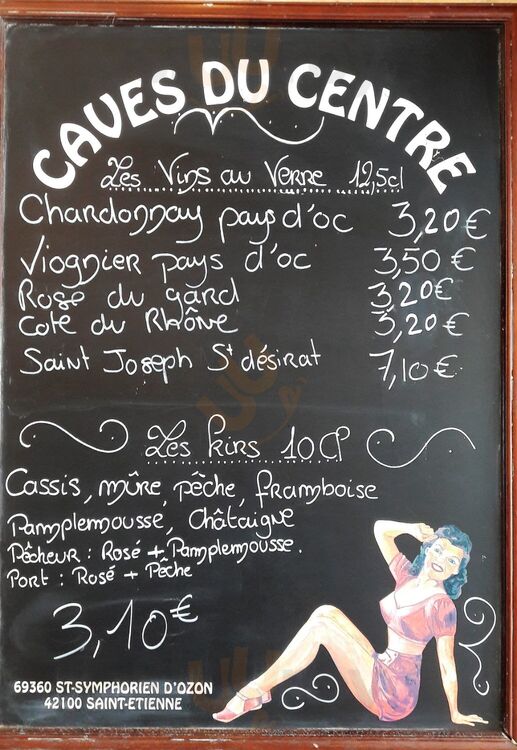 CAVES DU CENTRE
Les Vins au Verre 12,5cl
Chardonnay pays d'oc 3,20€
Viognier pays d'oc 3,50€
Rosé du gard 3,20€
Cote du Rhône 3,20€
Saint Joseph St désirat 7,10€
Les kirs 10Cl
Cassis, mûre, pêche, framboise
Pamplemousse, Châtaigne
Pêcheur : Rosé + Pamplemousse.
Port : Rosé + Pêche
3,10€
69360 ST-SYMPHORIEN D'OZON
42100 SAINT-ETIENNE